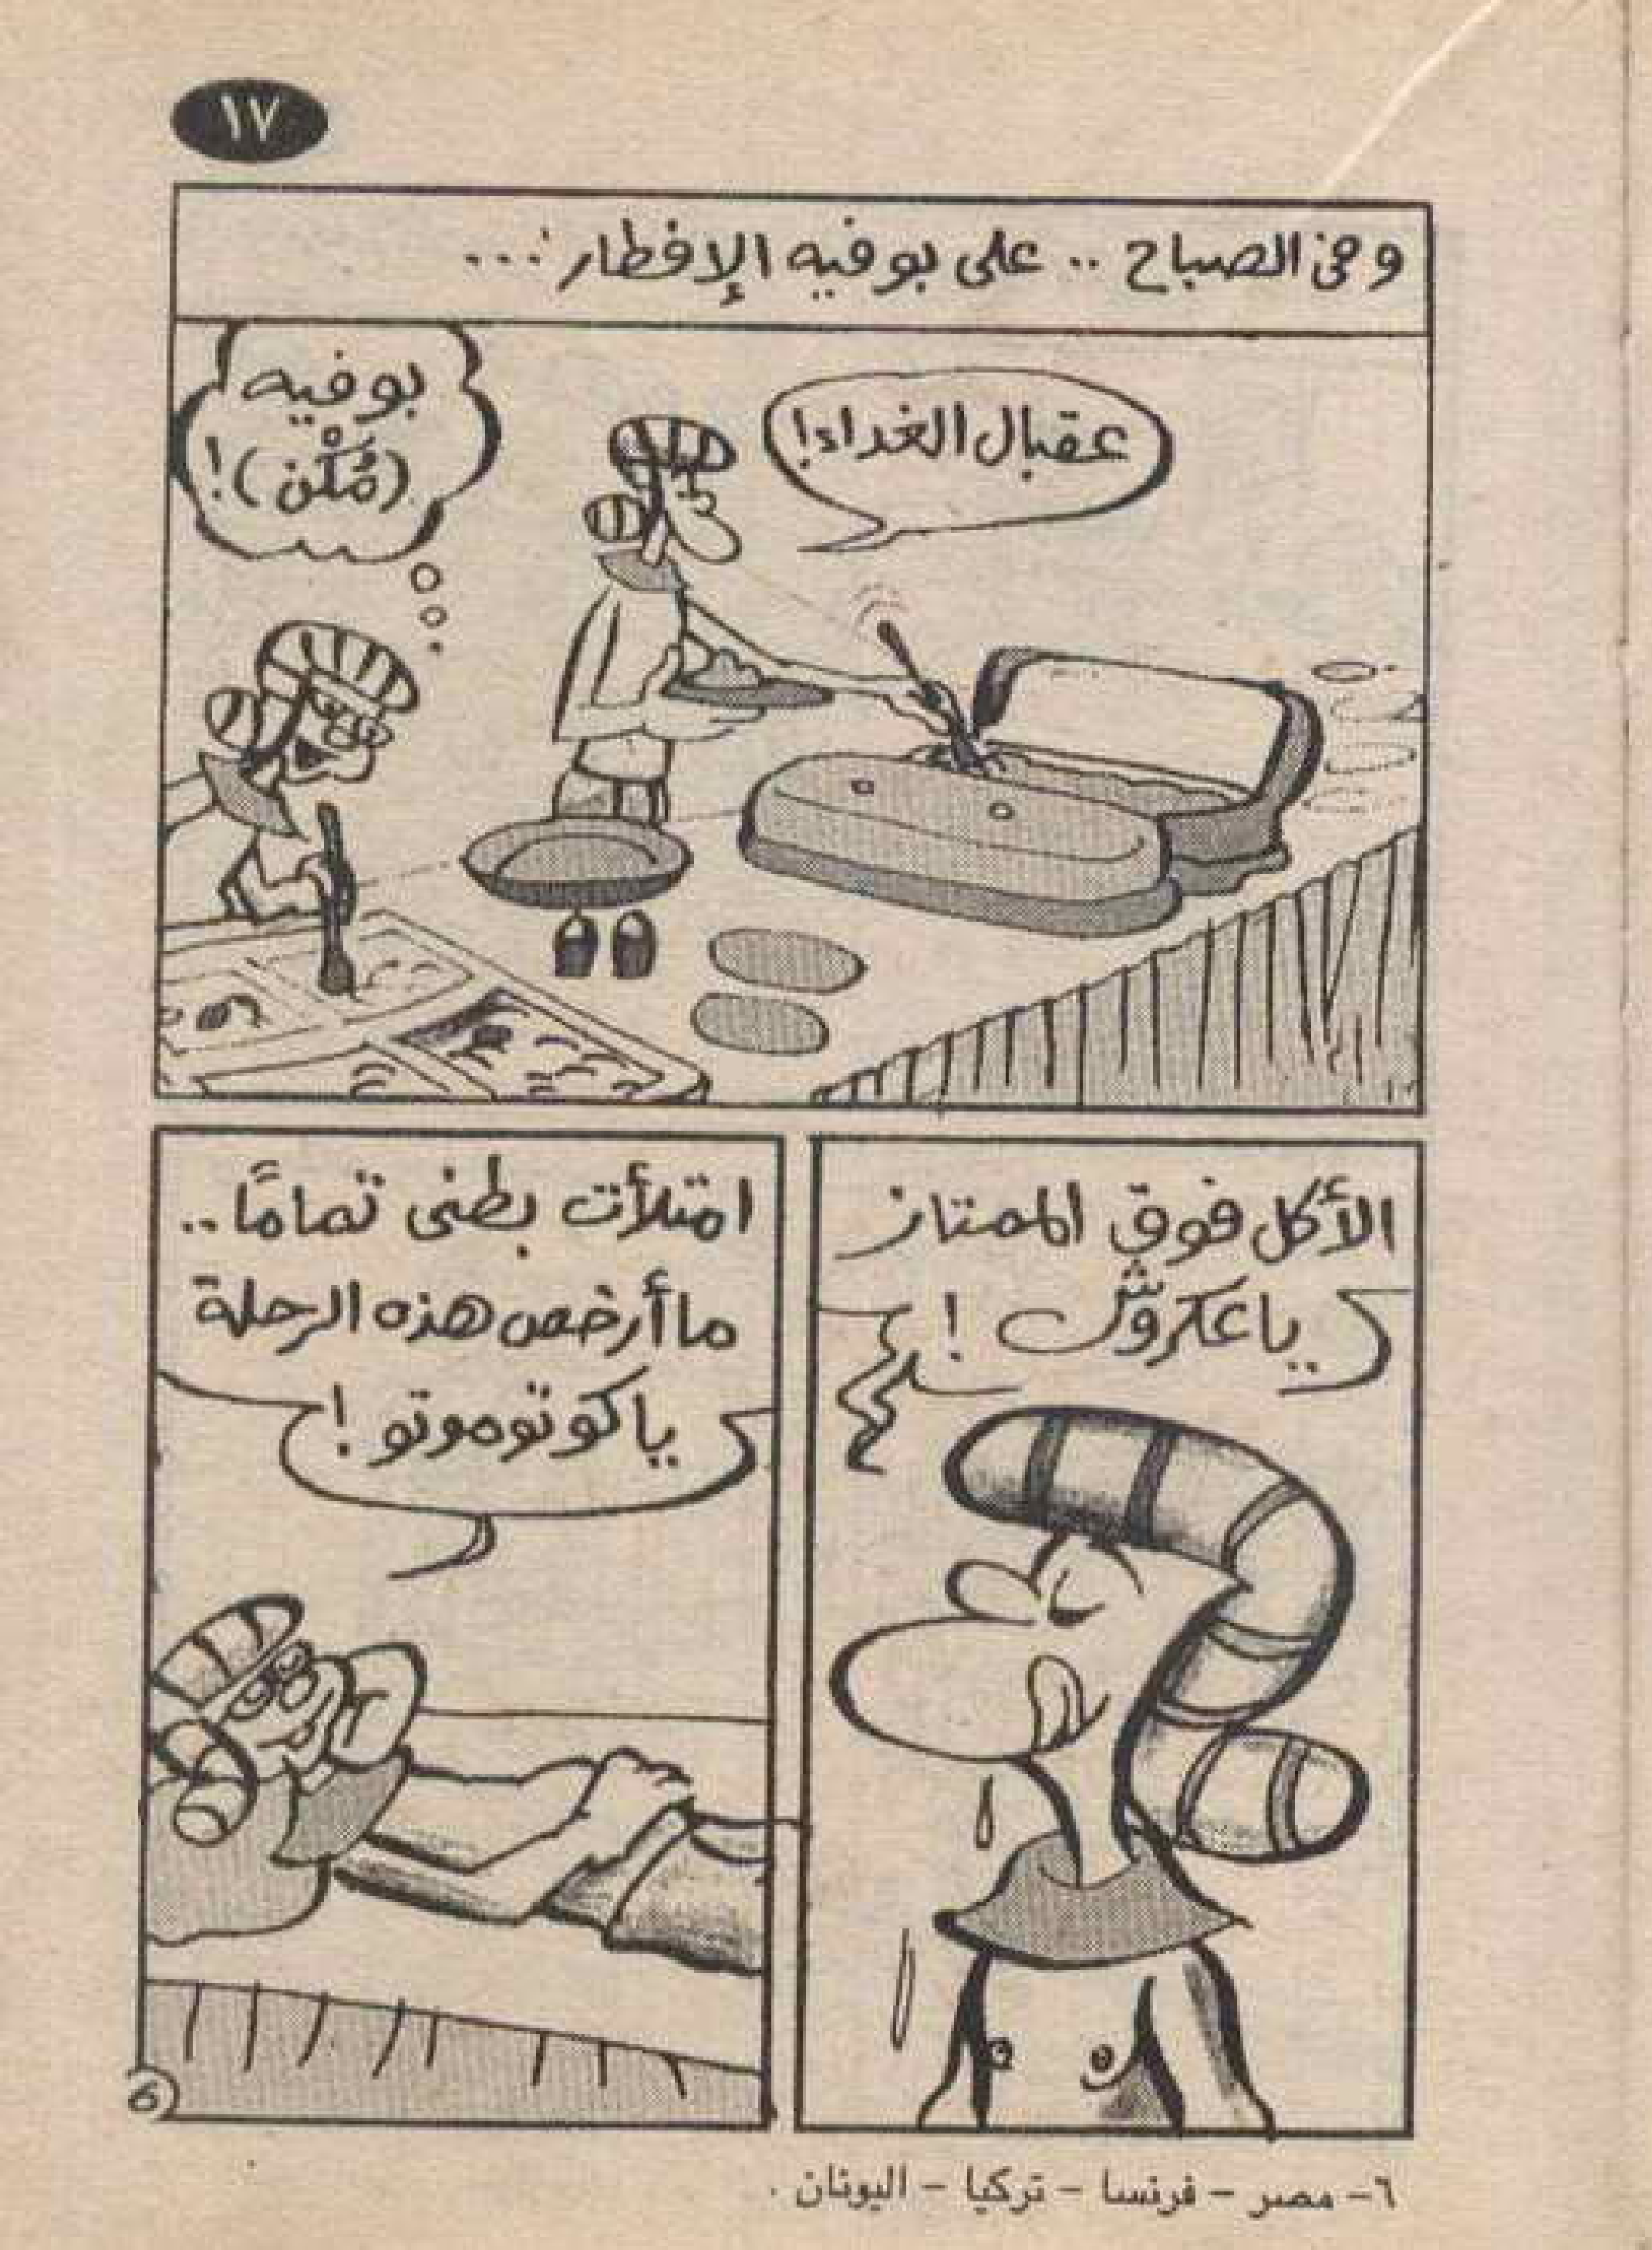 ١٧
وفى الصباح .. على بوفيه الإفطار ...
عقبال الغداء!
بوفيه
(مُكْن)!
الأكل فوق الممتاز
يا عكروش !
امتلأت بطنى تمامًا..
ما أرخص هذه الرحلة
يا كوتوموتو !
6
٦- مصر - فرنسا - تركيا - اليونان .